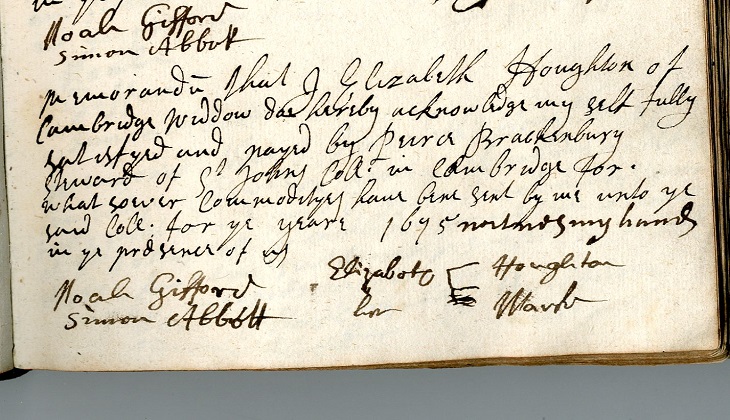 Noah Gifford
Simon Abbott
Memorandū that I Elizabeth Houghton of
Cambridge widdow doe hereby acknowledge my self fully
satisfyed and payed by Peirce Brackenbury
Steward of St Johns Coll: in Cambridge for
what soever Commodityes have bene sent by me unto ye
said Coll: for ye yeare 1675 witnes my hand
in ye presence of us
Noah Gifford Elizabeth Houghton
Simon Abbott her Marke